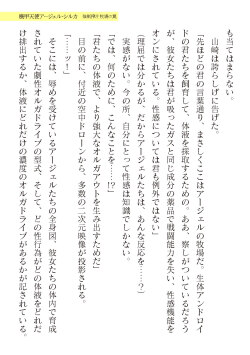 機甲天使アージェル・シルカ
も当てはまらない。
山崎は誇らしげに告げた。
「先ほどの君の言葉通り、まさしくここはアージェルの牧場だ。生体アンドロイ
ドの君たちを飼育して、体液を採取するための。ああ、察しがついているだろう
が、彼女たちは君が吸ったガスと同じ成分の薬品で戦闘能力を失い、性感機能を
オンにされている。性感機能については君も例外ではない」
「理屈では分かるが、アージェルたちは、あんな反応を……？」
実感がない。今の所、自分にとって性感は知識でしかない。
「では、何のために、こんなことを……！？」
「君たちの体液で、より強大なオルガアウトを生み出すためだ」
目の前に、付近の空中ドローンから、多数の二次元映像が投影される。
「……ッ！」
そこには、辱めを受けているアージェルたちの全身図、彼女たちの体内で育成
されていた劣性オルガドライブの型式、そして、どの性行為がどの体液をどれだ
け排出するか、体液にどれだけの濃度のオルガドライブがあるかが記されている。